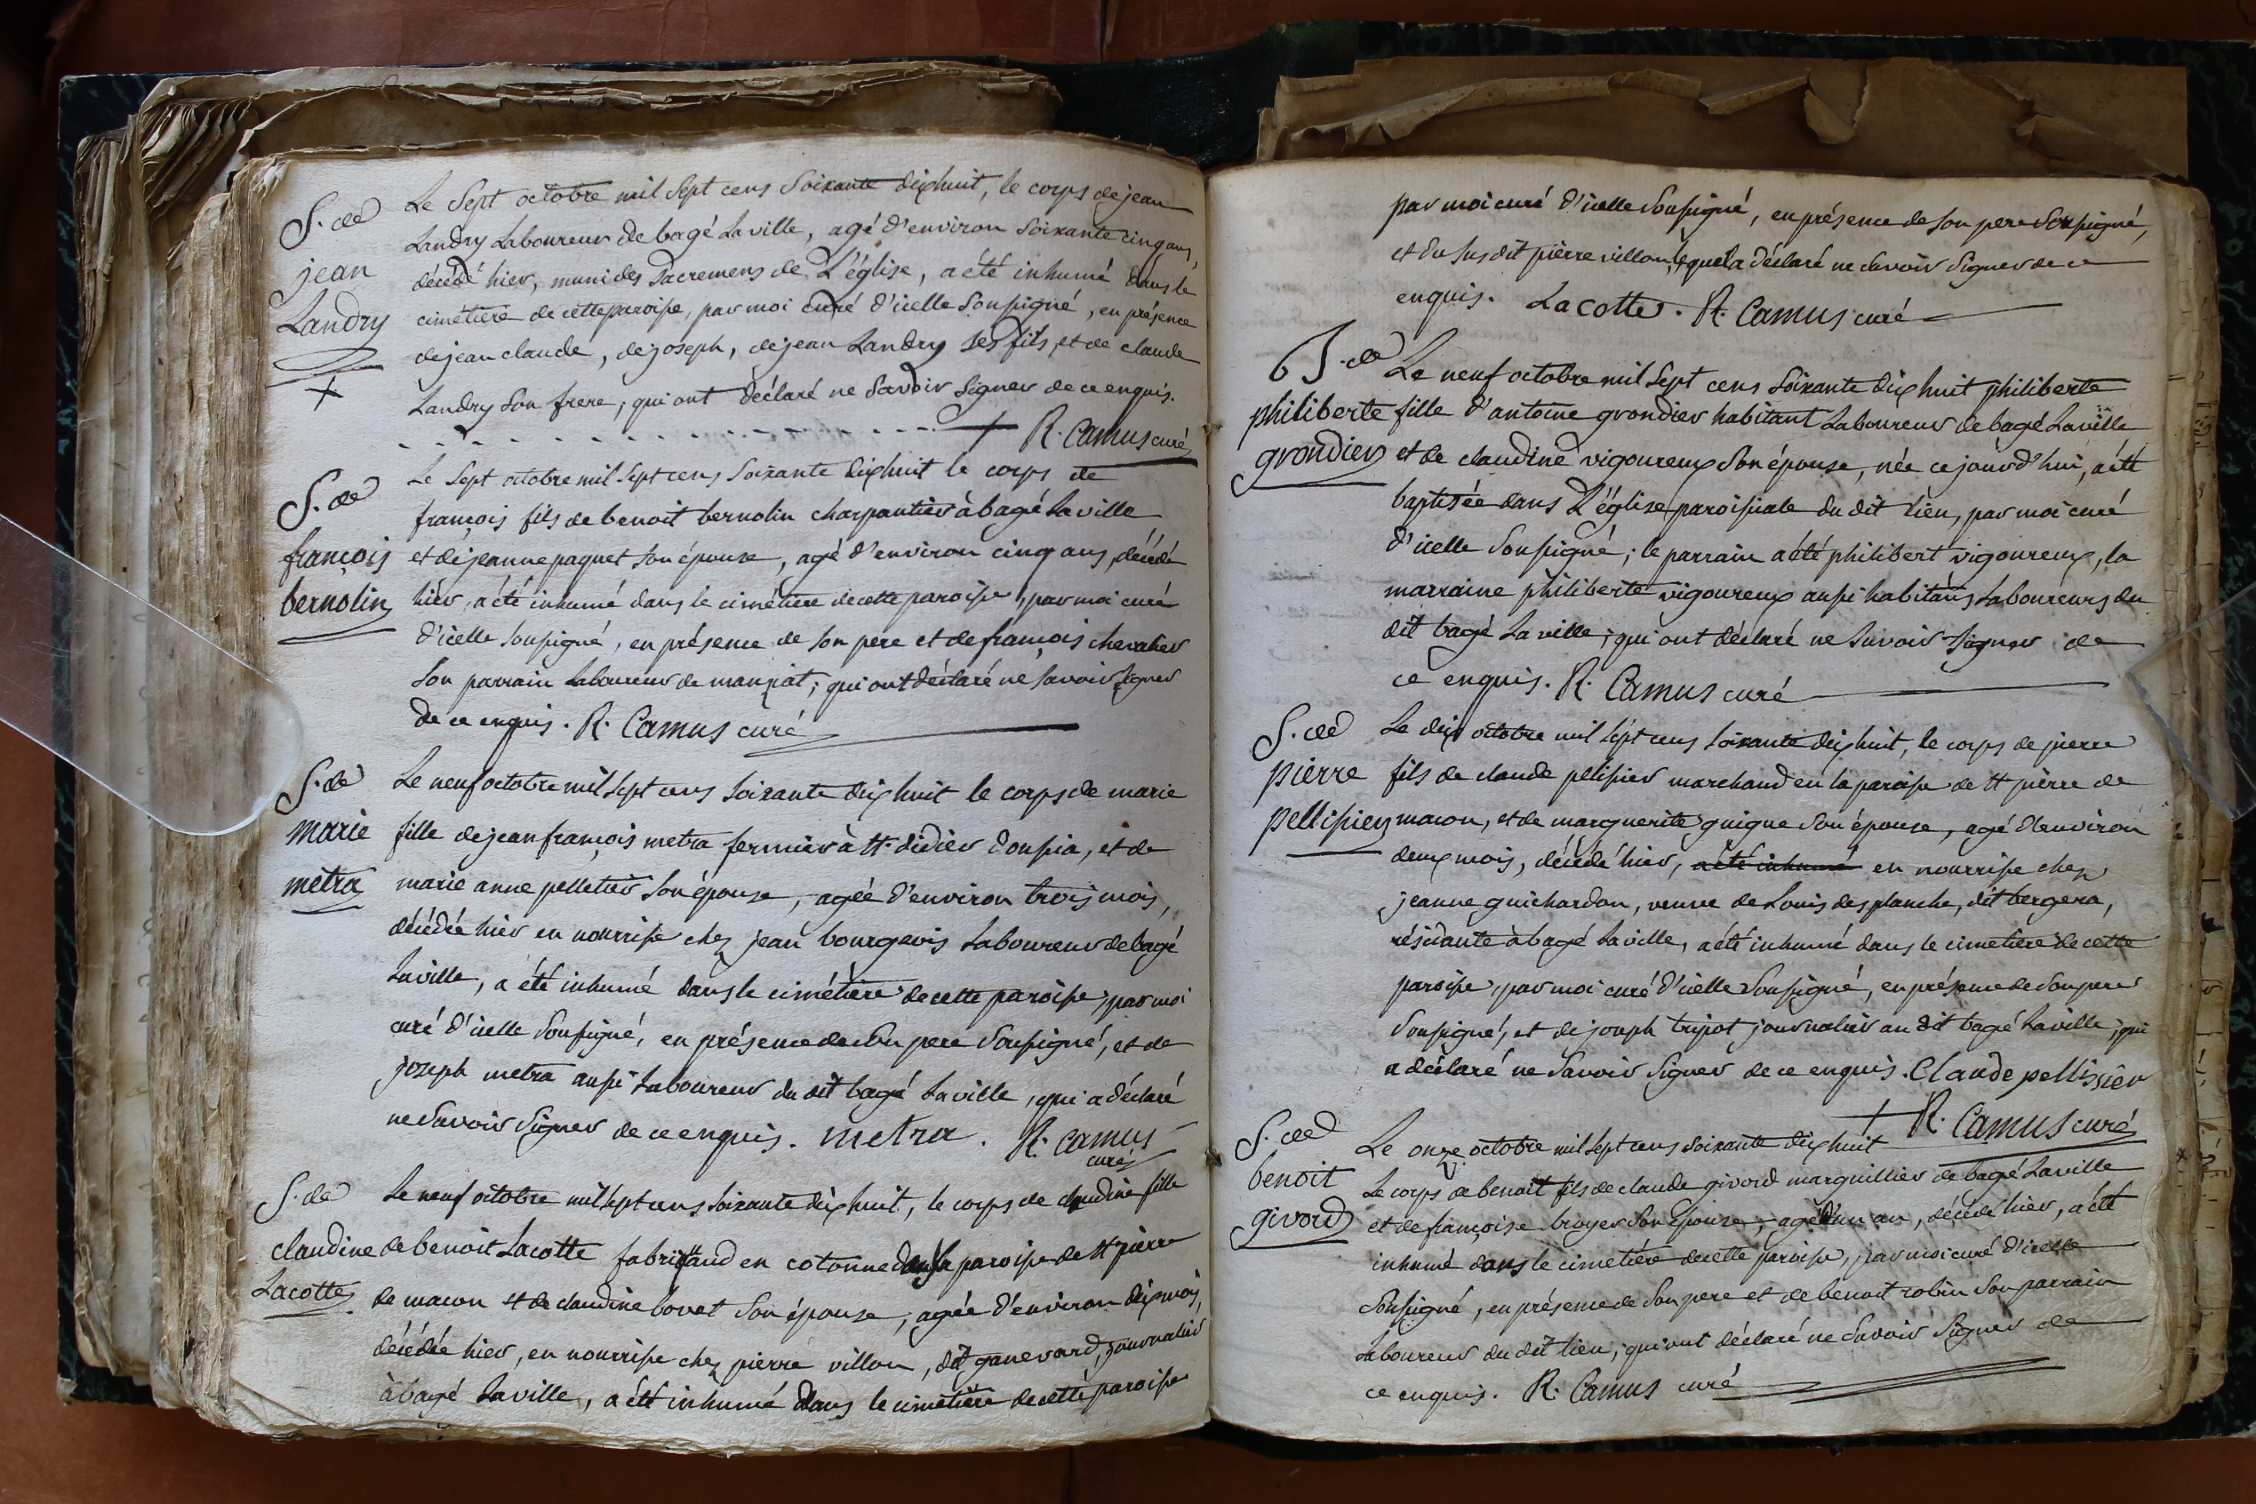 S. de
jean
Landry
Le Sept octobre mil Sept cens Soixante dixhuit, le corps de jean
Landry Laboureur de bagé La ville, agé d'environ Soixante cinq ans,
décédé hier, muni des Sacremens de L'église, a été inhumé dans le
cimétiere de cette paroisse, par moi curé d'icelle Soussigné, en présence
de jean claude, de joseph, de jean Landry ses fils, et de claude
Landry Son frere; qui ont déclaré ne Savoir Signer de ce enquis.
R. Camus curé
S. de
françois
bernolin
Le Sept octobre mil Sept cens Soixante dixhuit le corps de
françois fils de benoit bernolin charpantier à bagé La ville
et de jeanne paquet Son épouse, agé d'environ cinq ans, décédé
hier, a été inhumé dans le cimétiere de cette paroisse, par moi curé
d'icelle Soussigné, en présence de Son pere et de françois chevalier
Son parrain Laboureur de manziat; qui ont déclaré ne Savoir Signer
de ce enquis. R. Camus curé
S. de
marie
metra
Le neuf octobre mil Sept cens Soixante dix huit le corps de marie
fille de jean françois metra fermier à St didier d'oussia, et de
marie anne pelletier Son épouse, agée d'environ trois mois,
décédée hier en nourrisse chez jean bourgeois Laboureur de bagé
La ville, a été inhumé dans le cimétiere de cette paroisse, par moi
curé d'icelle Soussigné, en présence de Son pere Soussigné, et de
joseph metra aussi Laboureur du dit bagé La ville, qui a déclaré
ne Savoir Signer de ce enquis. metra. R. Camus
curé
S. de
claudine
Lacotte
Le neuf octobre mil Sept cens Soixante dix huit, le corps de claudine fille
de benoit Lacotte fabriquand en cotonne de la paroisse de St pierre
de macon et de claudine bovet Son épouse, agée d'environ dix mois,
décédée hier, en nourrisse chez pierre villon, dit ganevard, journalier
à bagé La ville, a été inhumé dans le cimétiere de cette paroisse
par moi curé d'icelle Soussigné, en présence de Son pere Soussigné,
et du Susdit pierre villon, lequel a déclaré ne Savoir Signer de ce
enquis. Lacotte. R. Camus curé
B. de
philiberte
grondier
Le neuf octobre mil Sept cens Soixante dix huit philiberte
fille d'antoine grondier habitant Laboureur de bagé La ville
et de claudine vigoureux Son épouse, née ce jourd'hui, a été
baptisée dans L'église paroissiale du dit Lieu, par moi curé
d'icelle Soussigné; le parrain a été philibert vigoureux, la
marraine philiberte vigoureux aussi habitans Laboureurs du
dit bagé La ville; qui ont déclaré ne Savoir Signer de
ce enquis. R. Camus curé
S. de
pierre
pellissier
Le dix octobre mil Sept cens Soixante dix huit, le corps de pierre
fils de claude pelissier marchand en la paroisse de St pierre de
macon, et de marguerite guigue Son épouse, agé d'environ
deux mois, décédé hier, a été inhumé en nourrisse chez
jeanne guichardon, veuve de Louis desplanche, dit bergera,
résidante à bagé La ville, a été inhumé dans le cimetiere de cette
paroisse, par moi curé d'icelle Soussigné, en présence de Son pere
Soussigné, et de joseph tripot journalier au dit bagé La ville; qui
a déclaré ne Savoir Signer de ce enquis. Claude pellissier
R. Camus curé
S. de
benoit
givord
Le onze octobre mil Sept cens Soixante dix huit
Le corps de benoit fils de claude givord marguillier de bagé La ville
et de françoise broyer Son épouse, agé d'un an, décédé hier, a été
inhumé dans le cimetiére de cette paroisse, par moi curé d'icelle
Soussigné, en présence de Son pere et de benoit robin Son parrain
Laboureur du dit lieu; qui ont déclaré ne Savoir Signer de
ce enquis. R. Camus curé